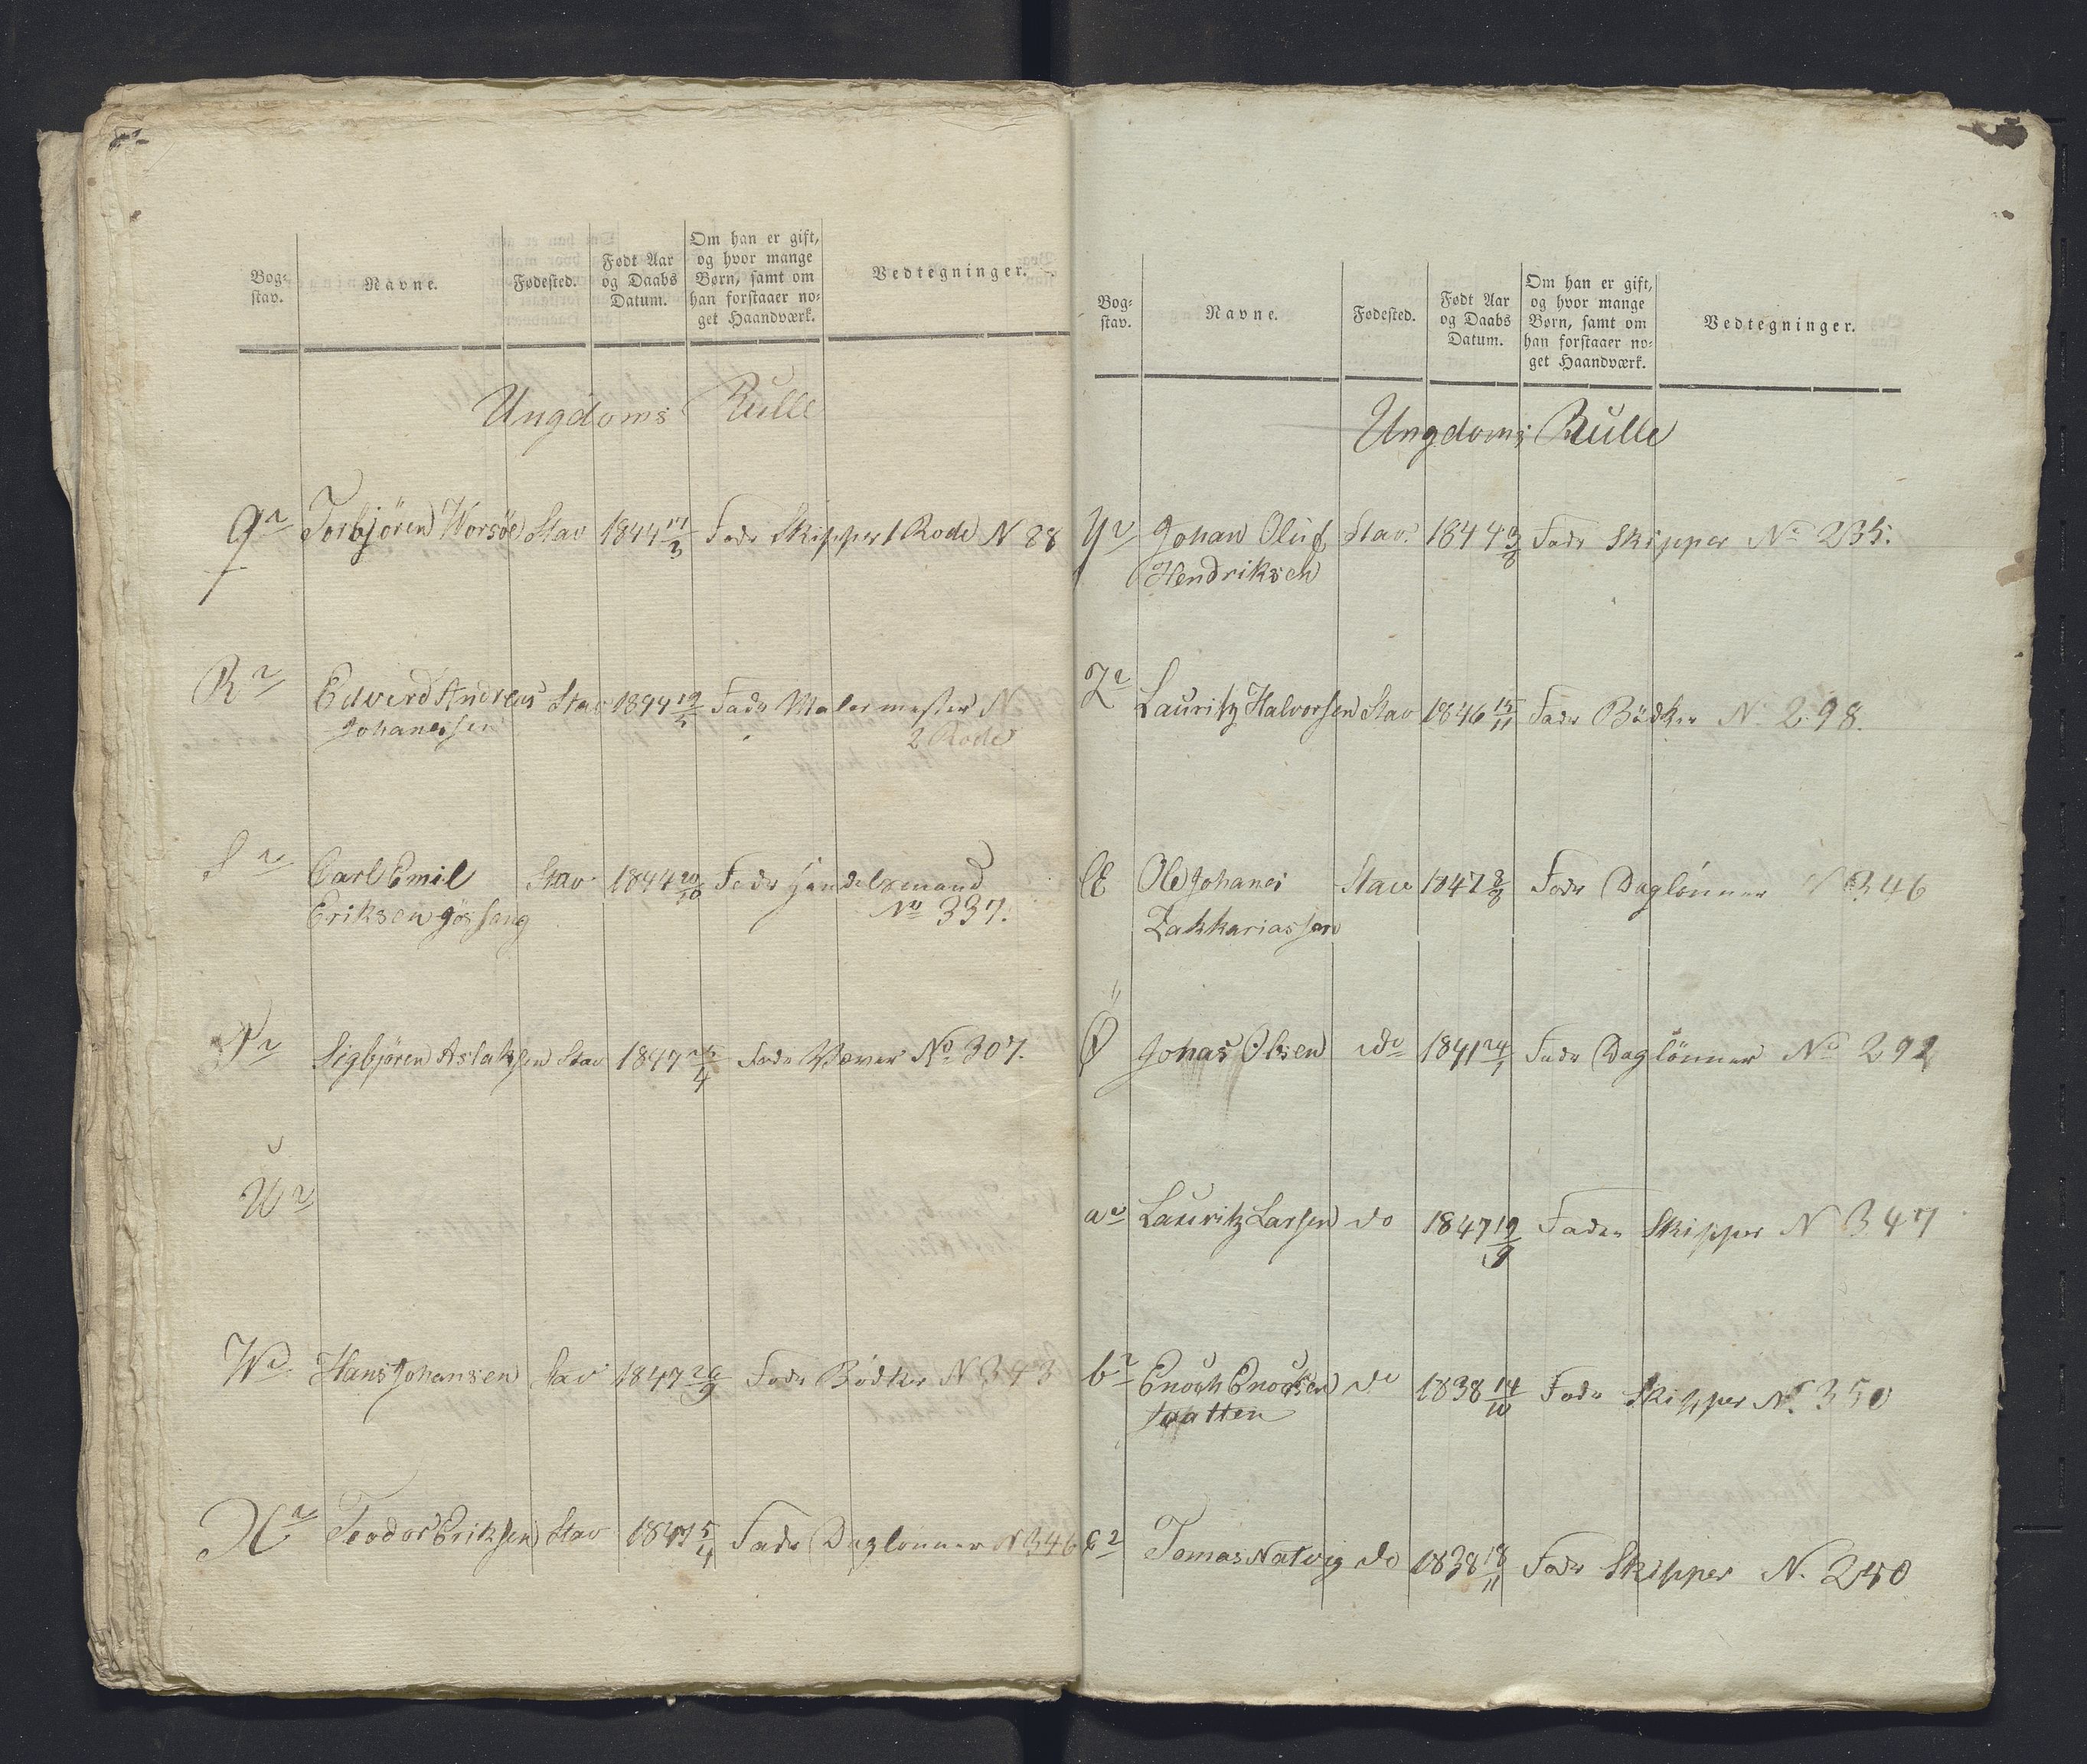 Bog-
stav.
Navne.
Fødested.
Født Aar
og Daabs
Datum.
Om han er gift,
og hvor mange
Børn, samt om
han forstaaer no-
get Haandværk.
Vedtegninger.
Ungdoms Rulle
Torbjören Worsöe Stav 1844 Fadr Skipper 1 Rode N 88
R Edverd Andreas Stav 1844 19/5 Fadr Malermester N
Johanessen 2 Rode
S Carl Emil Stav 1844 20/10 Fadr Handelsmand
Eriksen No 337.
Sigbjören Aslaksen Stav 1847 25/4 Fadr Væver No 307.
U
W Hans Johansen Stav 1847 26/9 Fadr Bödker N 343
X Teodor Eriksen Stav 1847 5/4 Fadr Daglönner N 346
Bog-
stav.
Navne.
Fødested.
Født Aar
og Daabs
Datum.
Om han er gift,
og hvor mange
Børn, samt om
han forstaaer no-
get Haandværk.
Vedtegninger.
Ungdoms Rulle
Y Johan Oluf Stav. 1844 Fadr Skipper No 235.
Hendriksen
Z Lauritz Halvorsen Stav 1846 15/11 Fadr Bödker N. 298.
Æ Ole Johanes Stav 1847 8/8 Fadr Daglönner N 346
Zakkariassen
Ø Johas Olsen do 1841 24/1 Fadr Daglönner No 292
a Lauritz Larsen do 1847 19/9 Fader Skipper N 347
b Enoch Enocksen do 1838 14/10 Fadr Skipper No. 350
c Tomas Natvig do 1838 18/11 Fadr Skipper N. 250